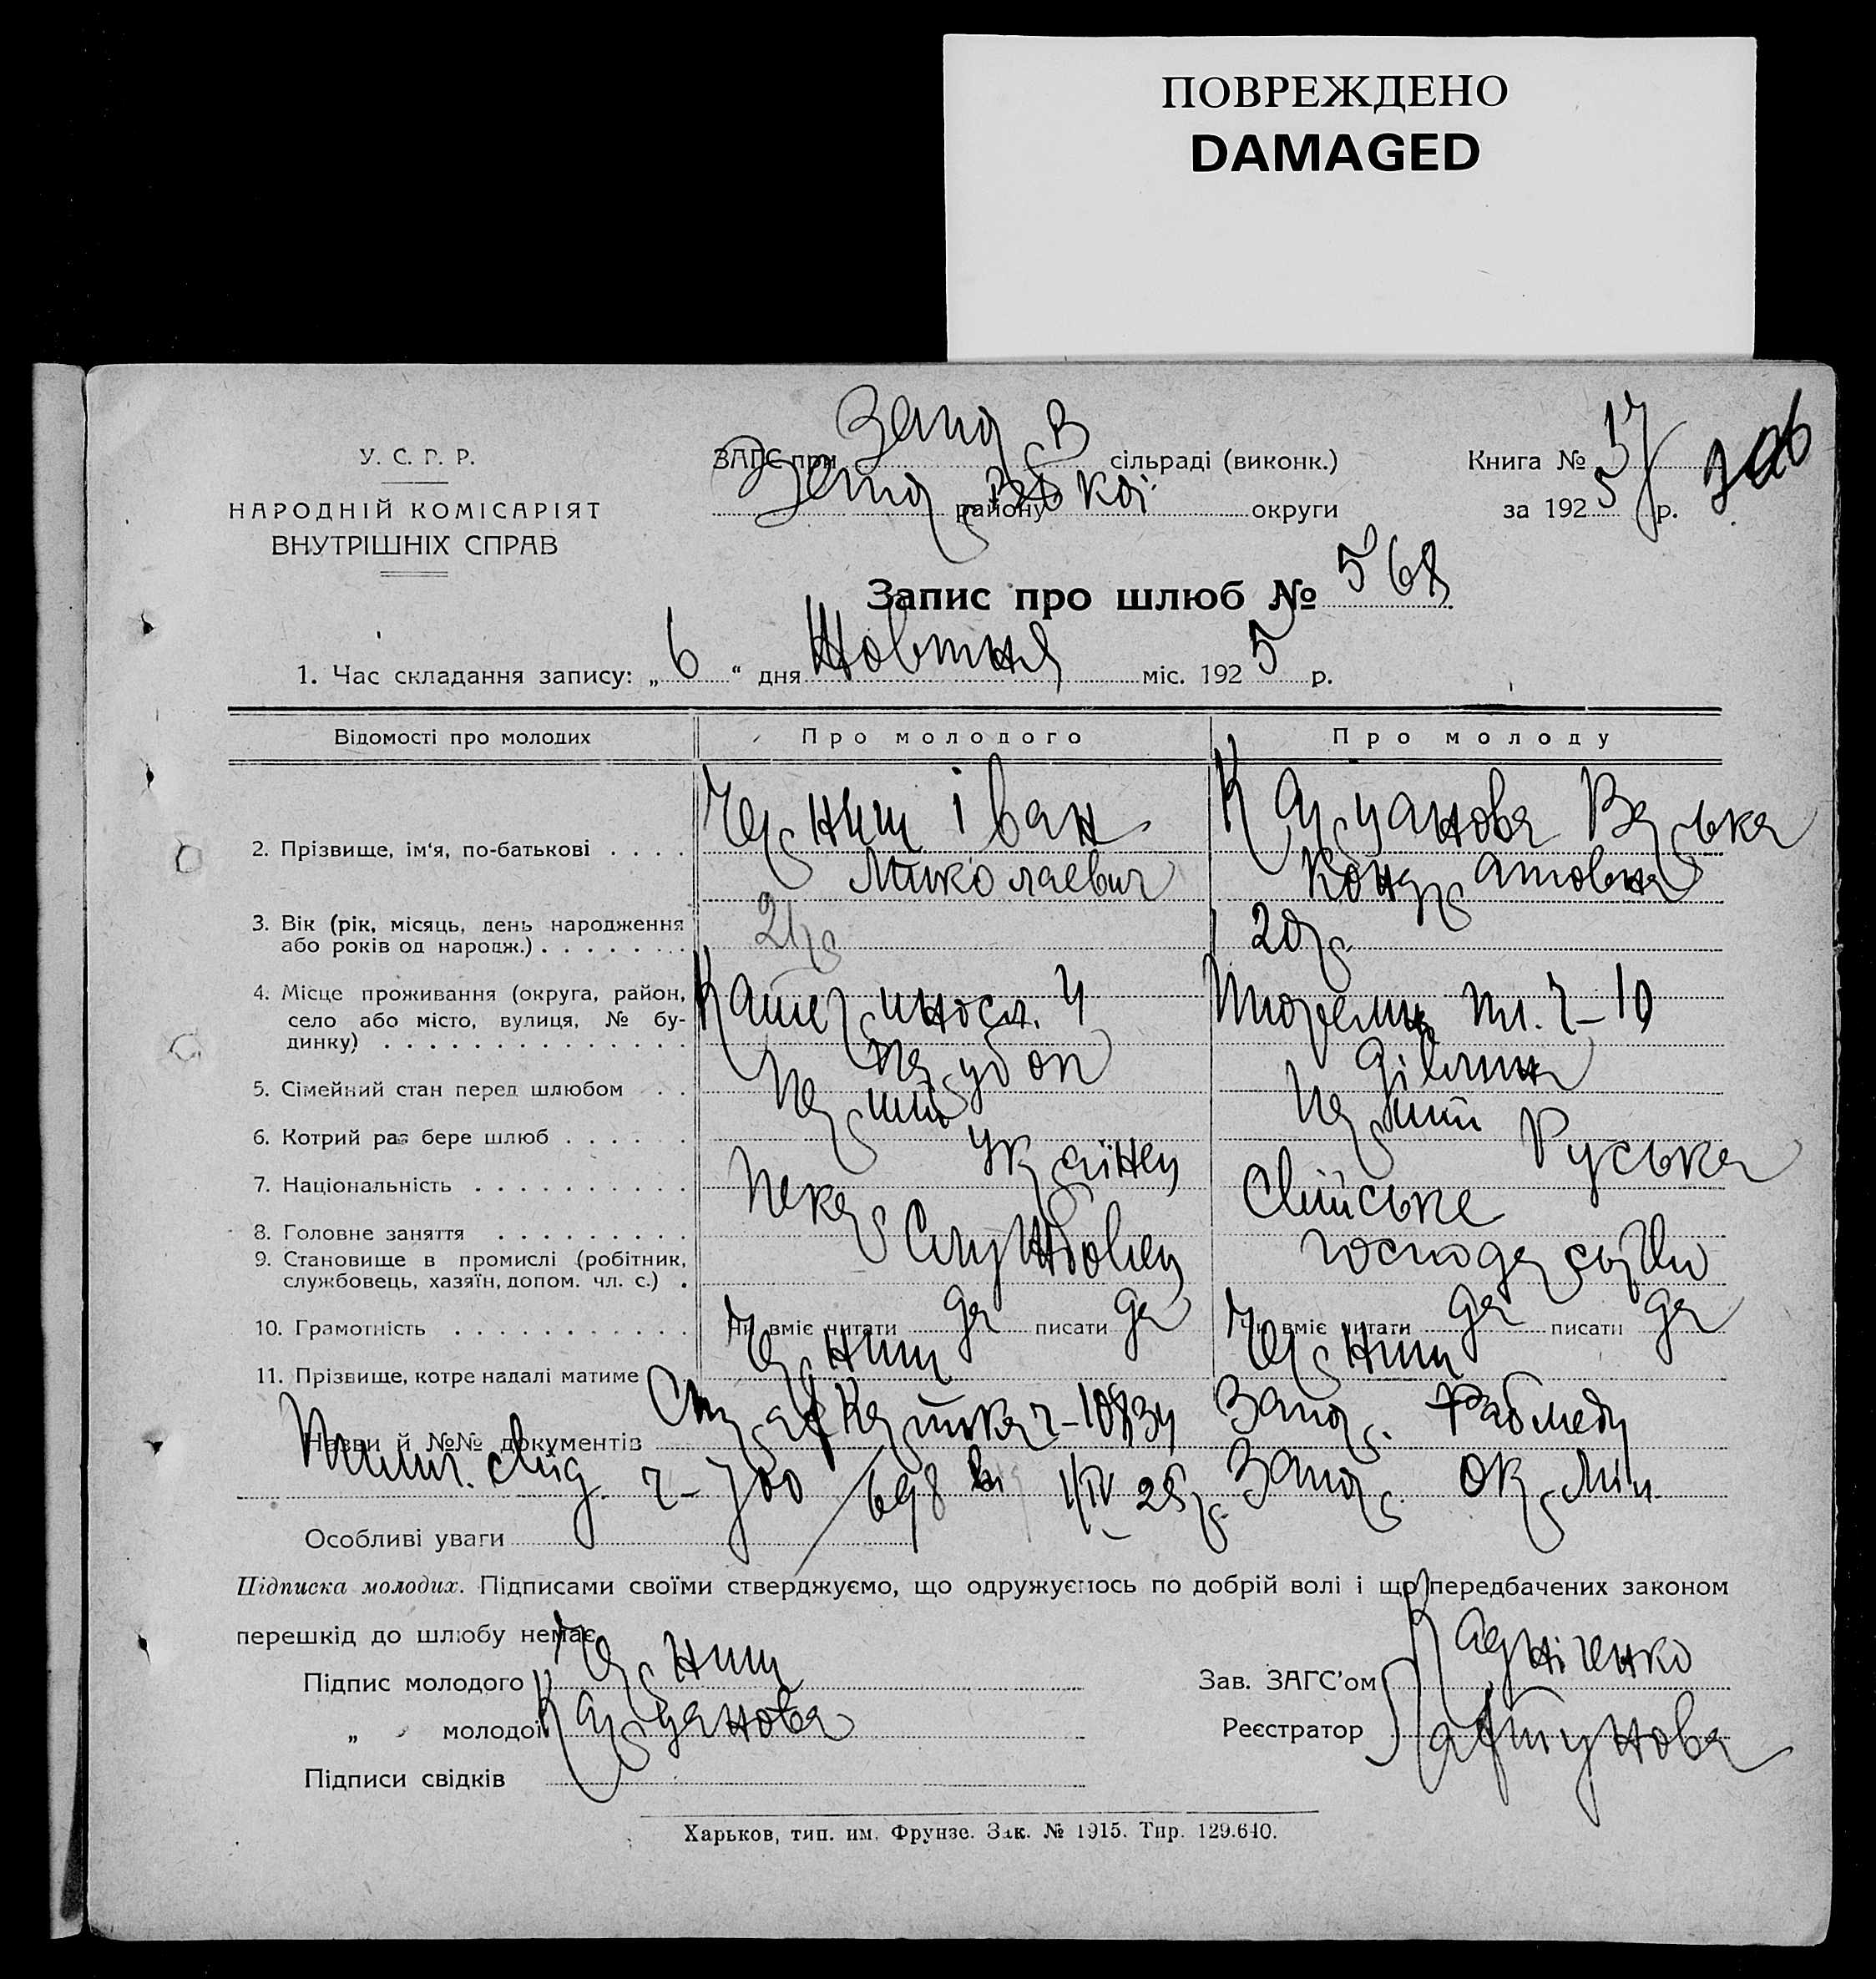 ПОВРЕЖДЕНО
DAMAGED
У. С. Р. Р.
НАРОДНІЙ КОМІСАРІЯТ
ВНУТРІШНІХ СПРАВ
ЗАГС при Запор сільраді (виконк.)
району округи
Книга № 17
за 1925 р.
Запис про шлюб № 568
1. Час складання запису: „6“ дня Жовтня міс. 1925 р.
Відомості про молодих
Про молодого
Про молоду
2. Прізвище, ім‘я, по-батькові . . . .
Черниш Іван
Миколаевич
Варька
Кондратовна
3. Вік (рік, місяць, день народження
або років од народж.) . . . . . . .
21р
20р.
4. Місце проживання (округа, район,
село або місто, вулиця, № бу-
динку) . . . . . . . . . . . . . .
4
пл. ч-10
5. Сімейний стан перед шлюбом . .
парубок
дівчина
6. Котрий раз бере шлюб . . . . . .
перший
перший
7. Національність . . . . . . . . . .
Українец
Руська
8. Головне заняття . . . . . . . . .
пекар
свійське
9. Становище в промислі (робітник,
службовець, хазяїн, допом. чл. с.) .
Службовец
господарство
10. Грамотність . . . . . . . . . . .
Чи вміє читати да писати да
Чи вміє читати да писати да
11. Прізвище, котре надалі матиме
Черниш
Черниш
Назви й №№ документів картка Запор.
ч- 700/698 1/IV 25р. Запор. Окр. Міл.
Особливі уваги
Підписка молодих. Підписами своїми стверджуємо, що одружуємось по добрій волі і що передбачених законом
перешкід до шлюбу немає
Підпис молодого Черниш
„ молодої
Підписи свідків
Зав. ЗАГС’ом
Реєстратор
Харьков, тип. им. Фрунзе. Зак. № 1915. Тир. 129.640.